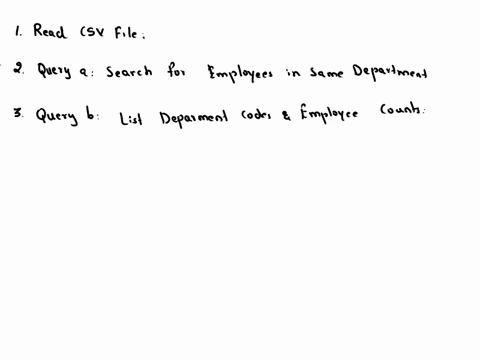 1. Read CSV File:
2. Query a: Search for Employees in Same Department
3. Query b: List Deparment Codes & Employee Counts: